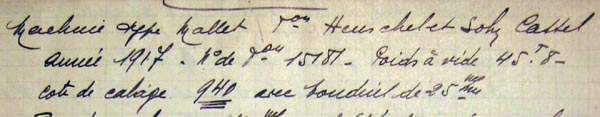 Machine type Mallet Fon Henschel et Sohn Cassel
année 1917 - No de Fon 15181 - Poids à vide 45T8 -
cote de calage 940 avec boudin de 25 mm